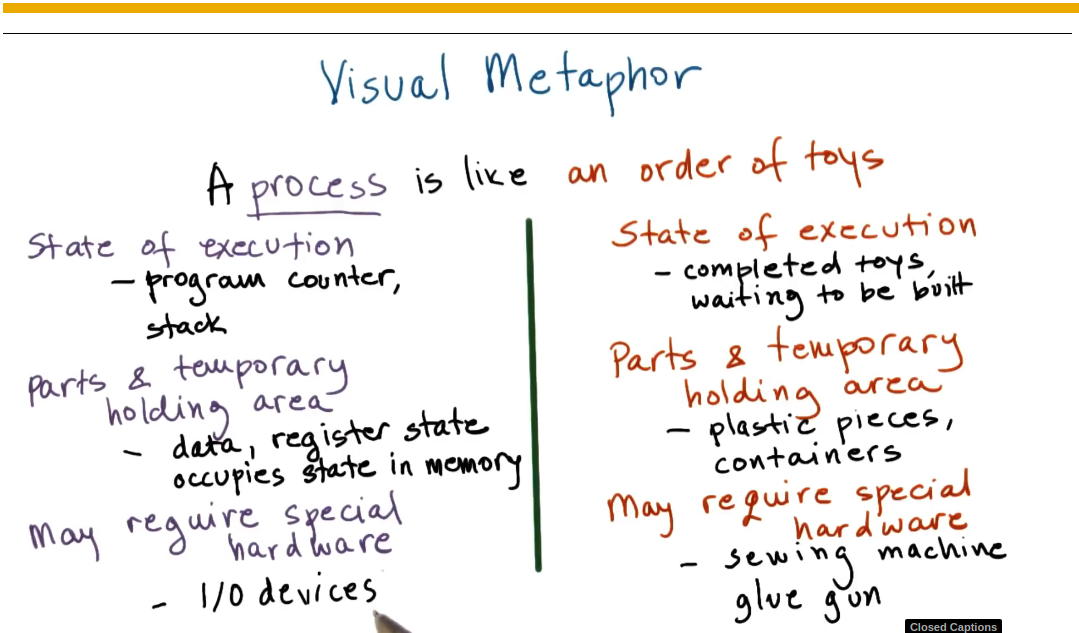 Visual Metaphor
A process is like an order of toys
State of execution
- program counter,
stack
Parts & temporary
holding area
- data, register state
occupies state in memory
May require special
hardware
- I/O devices
State of execution
- completed toys,
waiting to be built
Parts & temporary
holding area
- plastic pieces,
containers
May require special
hardware
- sewing machine
glue gun
Closed Captions